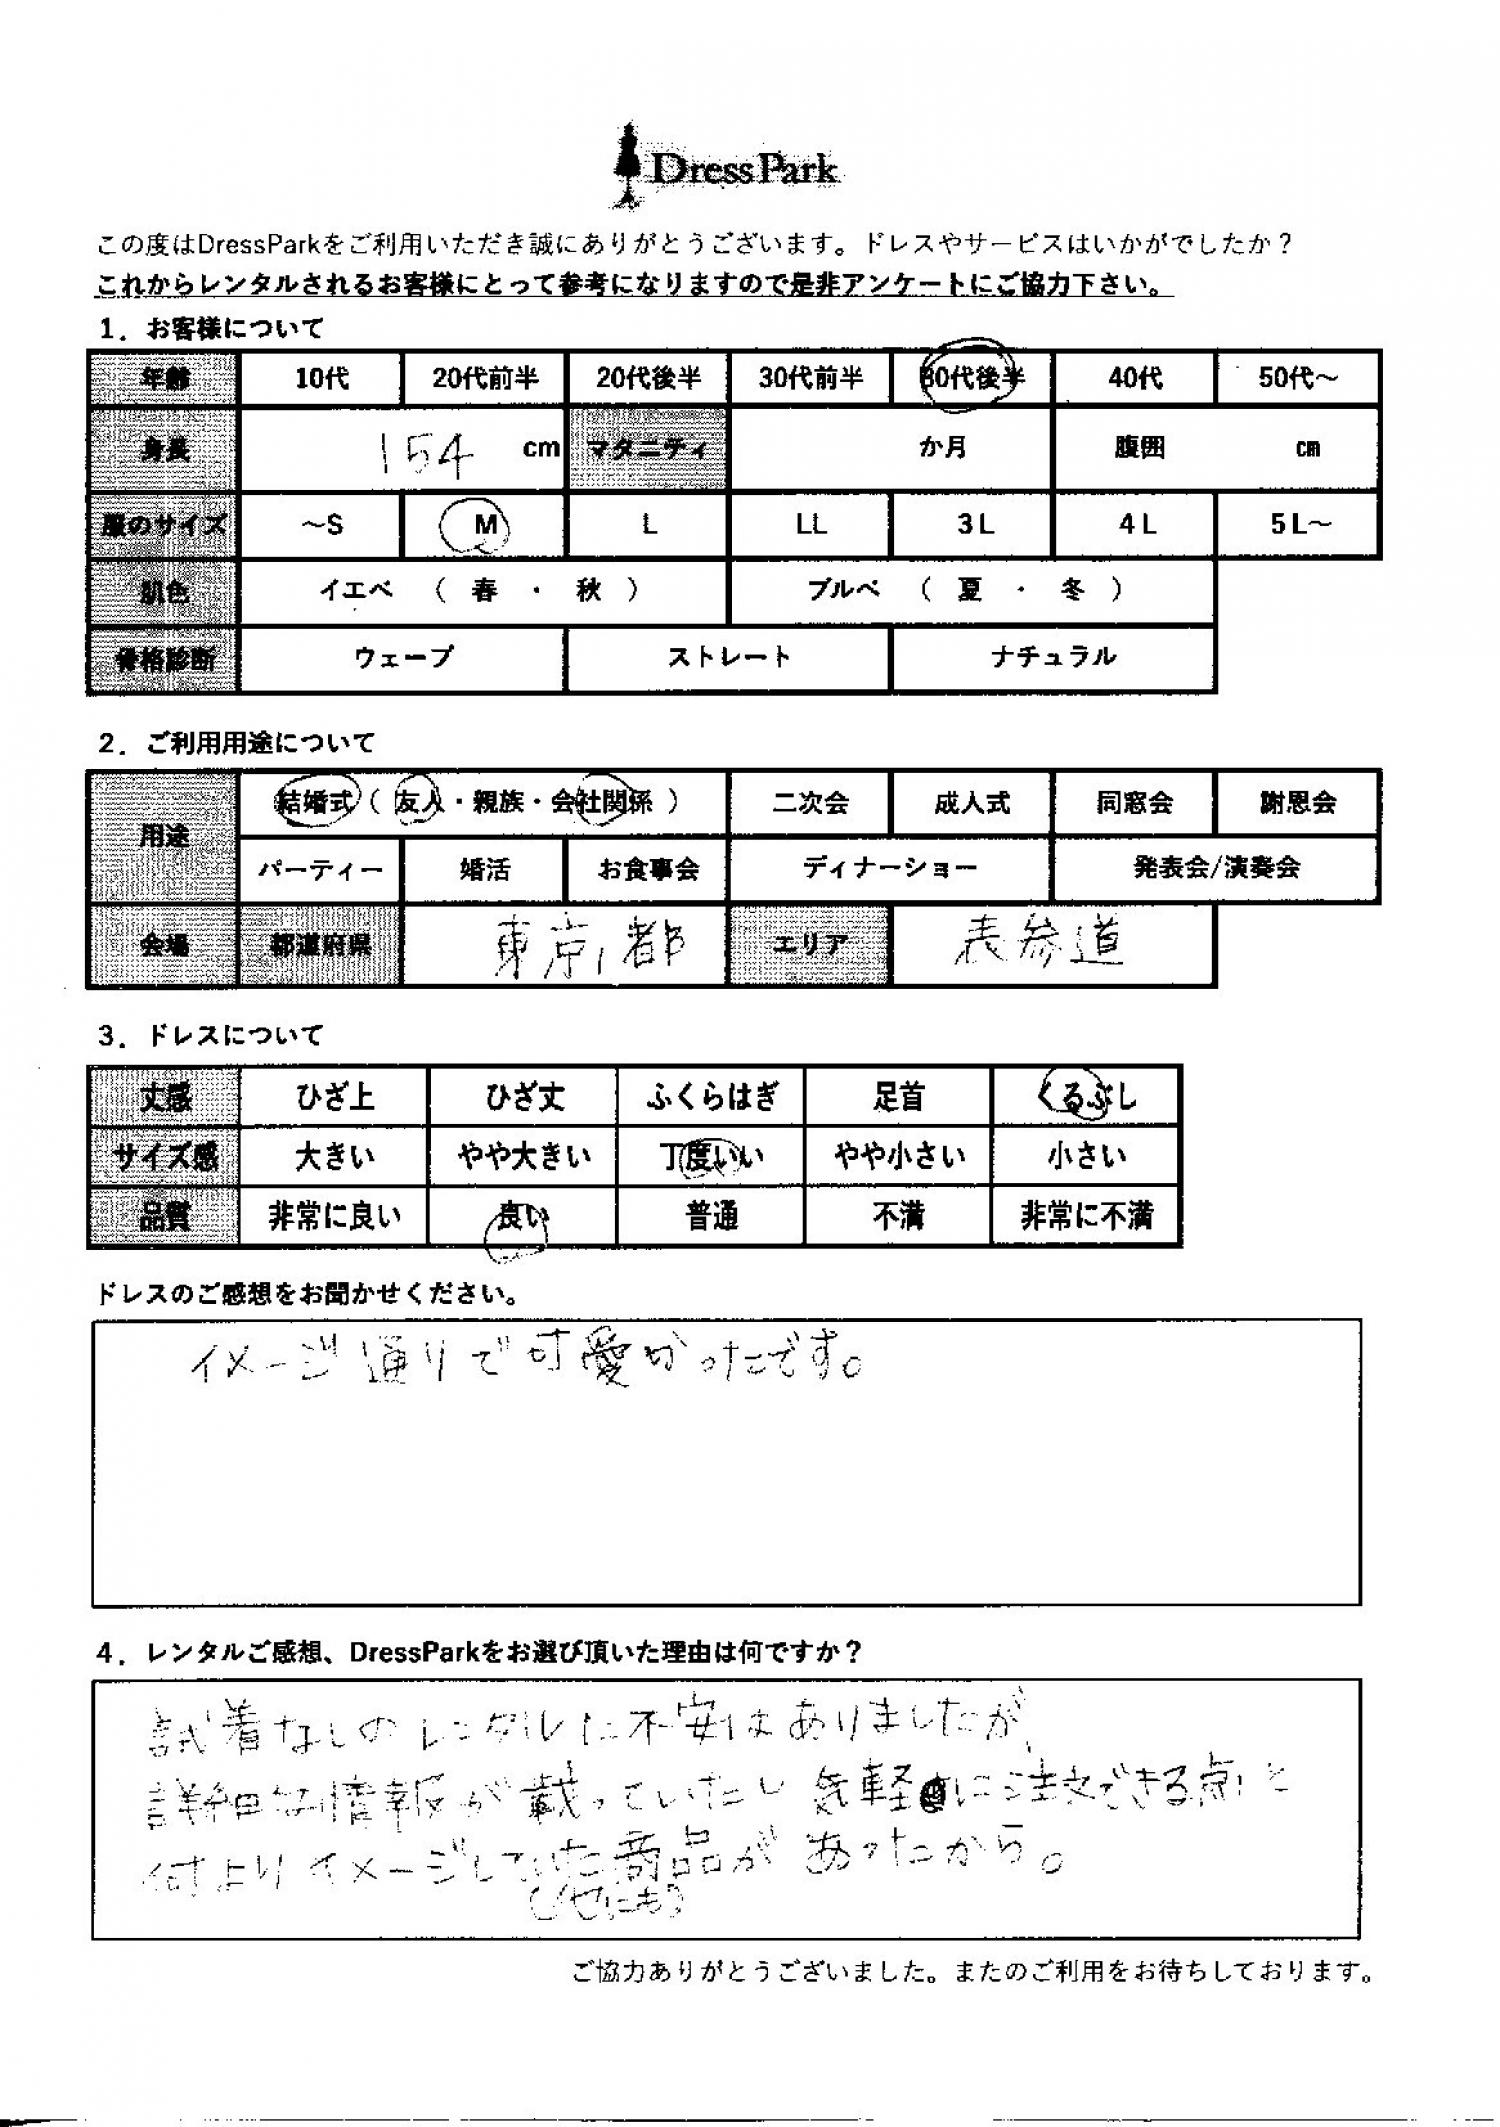 DressPark
この度はDressParkをご利用いただき誠にありがとうございます。ドレスやサービスはいかがでしたか？
これからレンタルされるお客様にとって参考になりますので是非アンケートにご協力下さい。
1．お客様について
年齢 10代 20代前半 20代後半 30代前半 30代後半 40代 50代～
身長 154 cm マタニティ か月 腹囲 cm
服のサイズ ～S M L LL 3L 4L 5L～
肌色 イエベ （ 春 ・ 秋 ） ブルベ （ 夏 ・ 冬 ）
骨格診断 ウェーブ ストレート ナチュラル
2．ご利用用途について
用途 結婚式（ 友人・親族・会社関係 ） 二次会 成人式 同窓会 謝恩会
パーティー 婚活 お食事会 ディナーショー 発表会/演奏会
会場 都道府県 東京都 エリア 表参道
3．ドレスについて
丈感 ひざ上 ひざ丈 ふくらはぎ 足首 くるぶし
サイズ感 大きい やや大きい 丁度いい やや小さい 小さい
品質 非常に良い 良い 普通 不満 非常に不満
ドレスのご感想をお聞かせください。
イメージ通りで可愛かったです。
4．レンタルご感想、DressParkをお選び頂いた理由は何ですか？
試着なしのレンタルに不安はありましたが、
詳細な情報が載っていたし気軽に注文できる点と
何よりイメージしていた商品があったから。
ご協力ありがとうございました。またのご利用をお待ちしております。